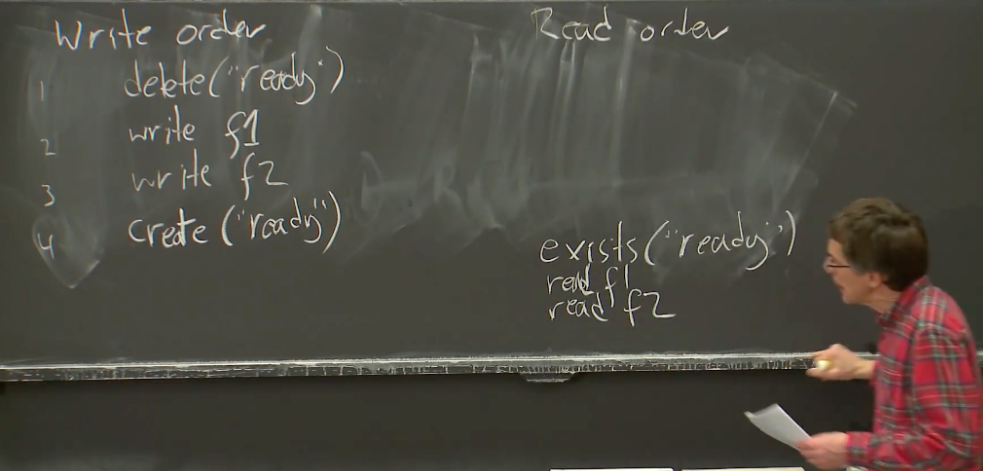 Write order
1 delete("ready")
2 write f1
3 write f2
4 create ("ready")
Read order
exists("ready")
read f1
read f2